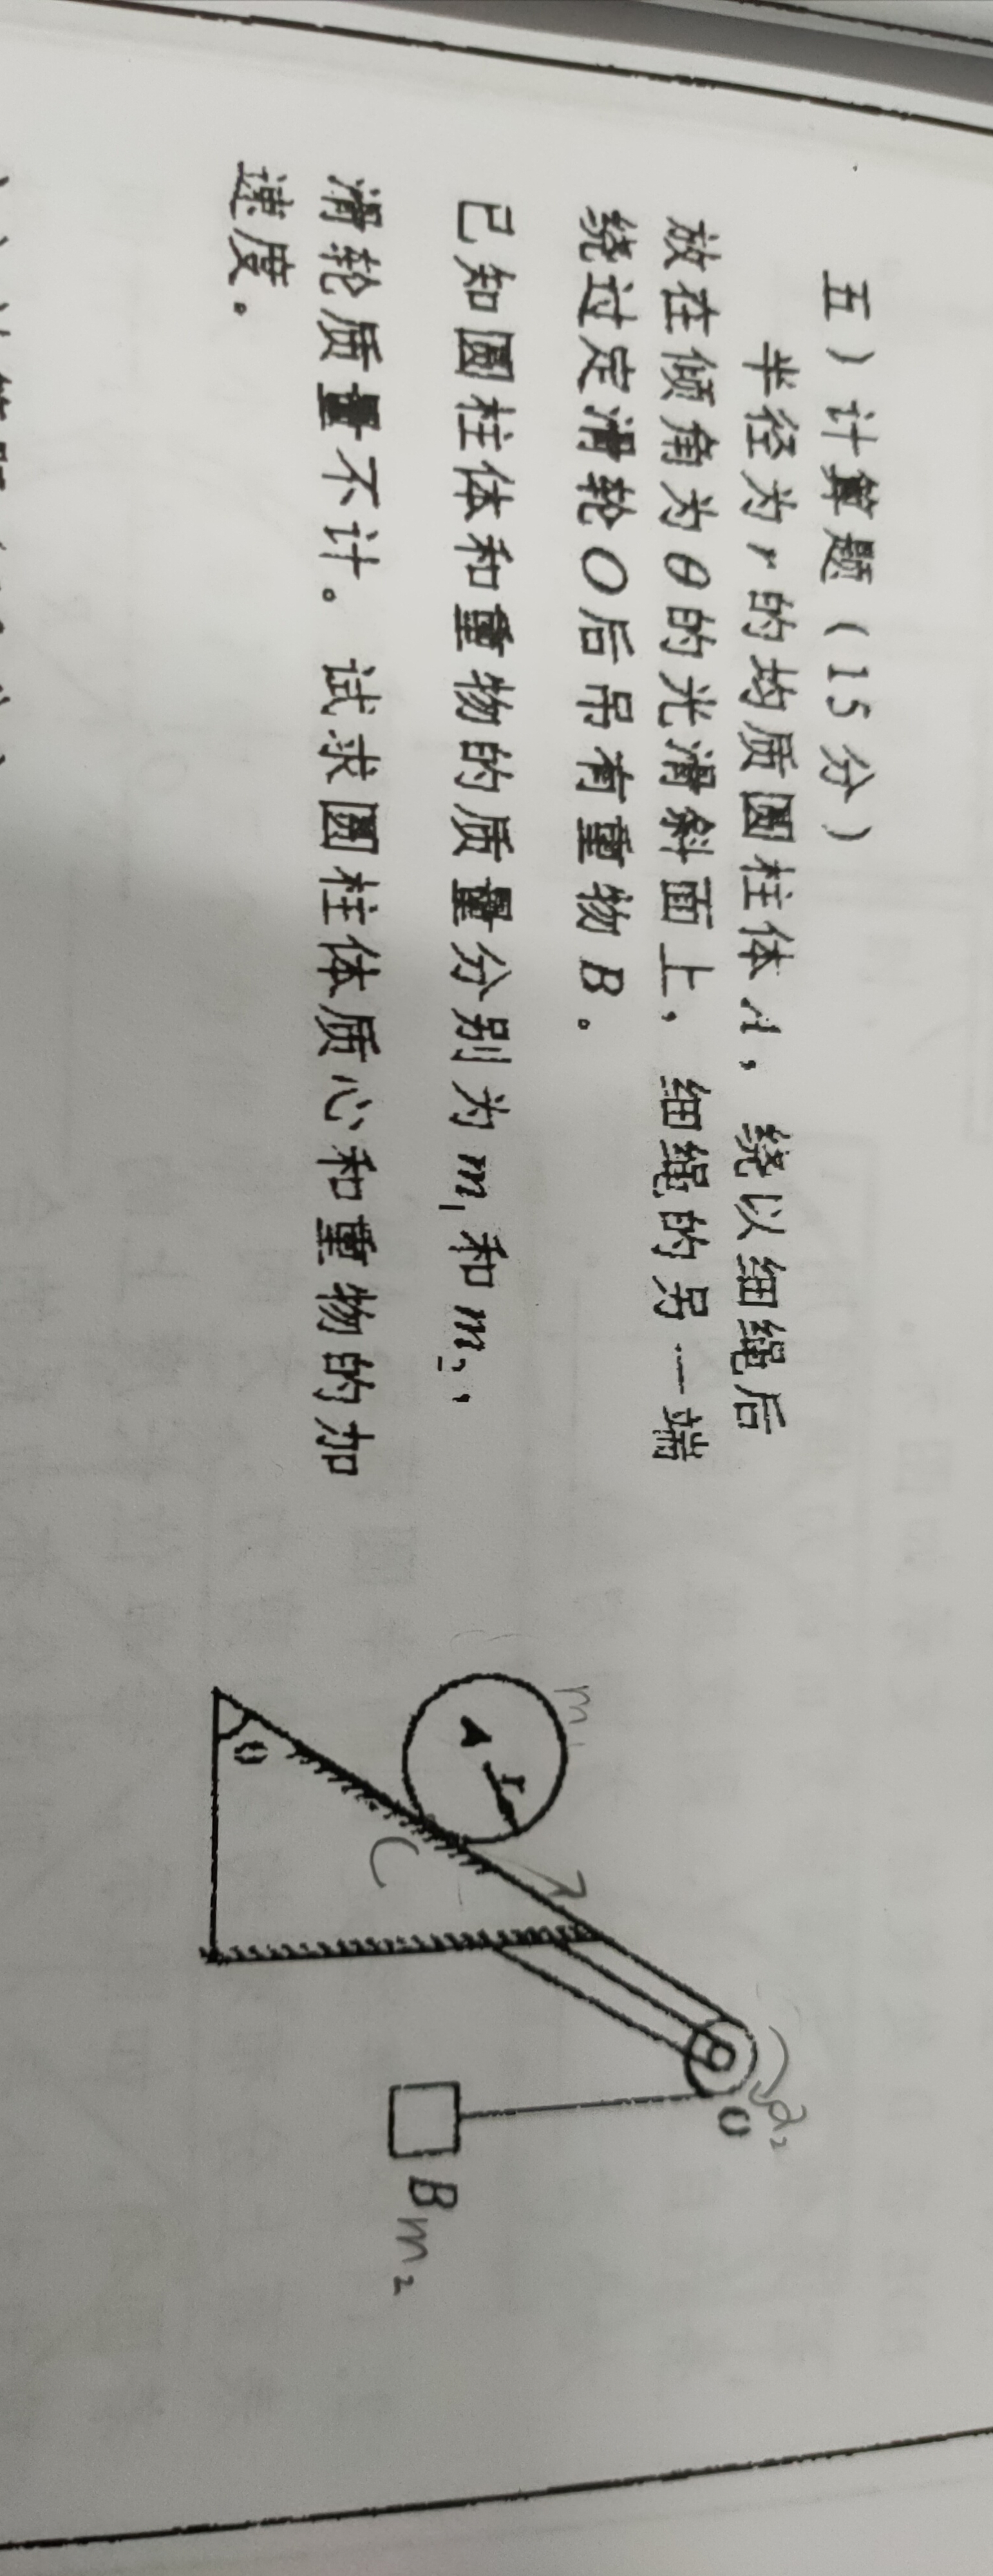 五）计算题（15分）
半径为r的均质圆柱体A，绕以细绳后
放在倾角为θ的光滑斜面上，细绳的另一端
绕过定滑轮O后吊有重物B。
已知圆柱体和重物的质量分别为m₁和m₂，
滑轮质量不计。试求圆柱体质心和重物的加
速度。
m₁
A
r
θ
C
O
α₂
B
m₂